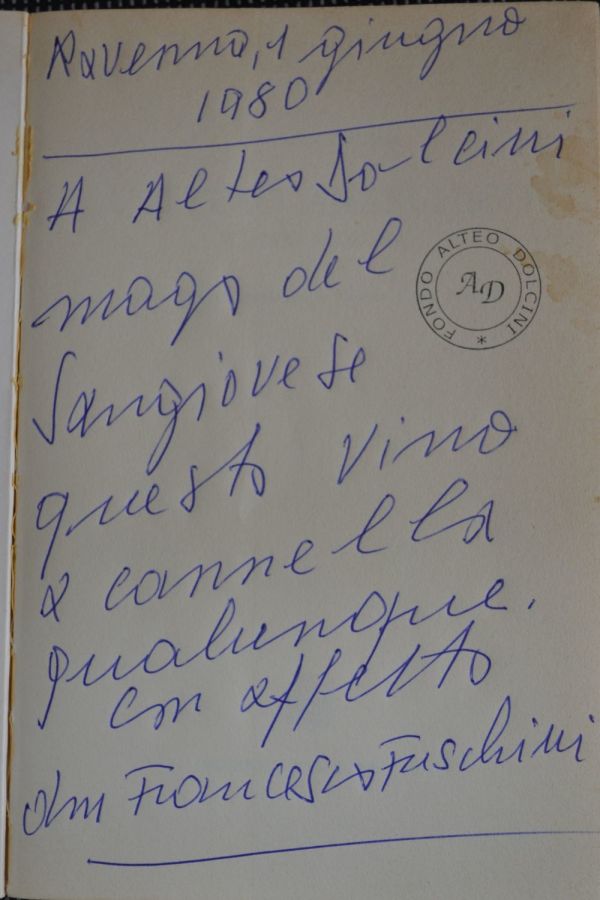 Ravenna, 1 giugno
1980
A Alteo Dolcini
mago del
Sangiovese
questo vino
a cannella
qualunque.
con affetto
don Francesco Fuschini
* FONDO ALTEO DOLCINI
AD